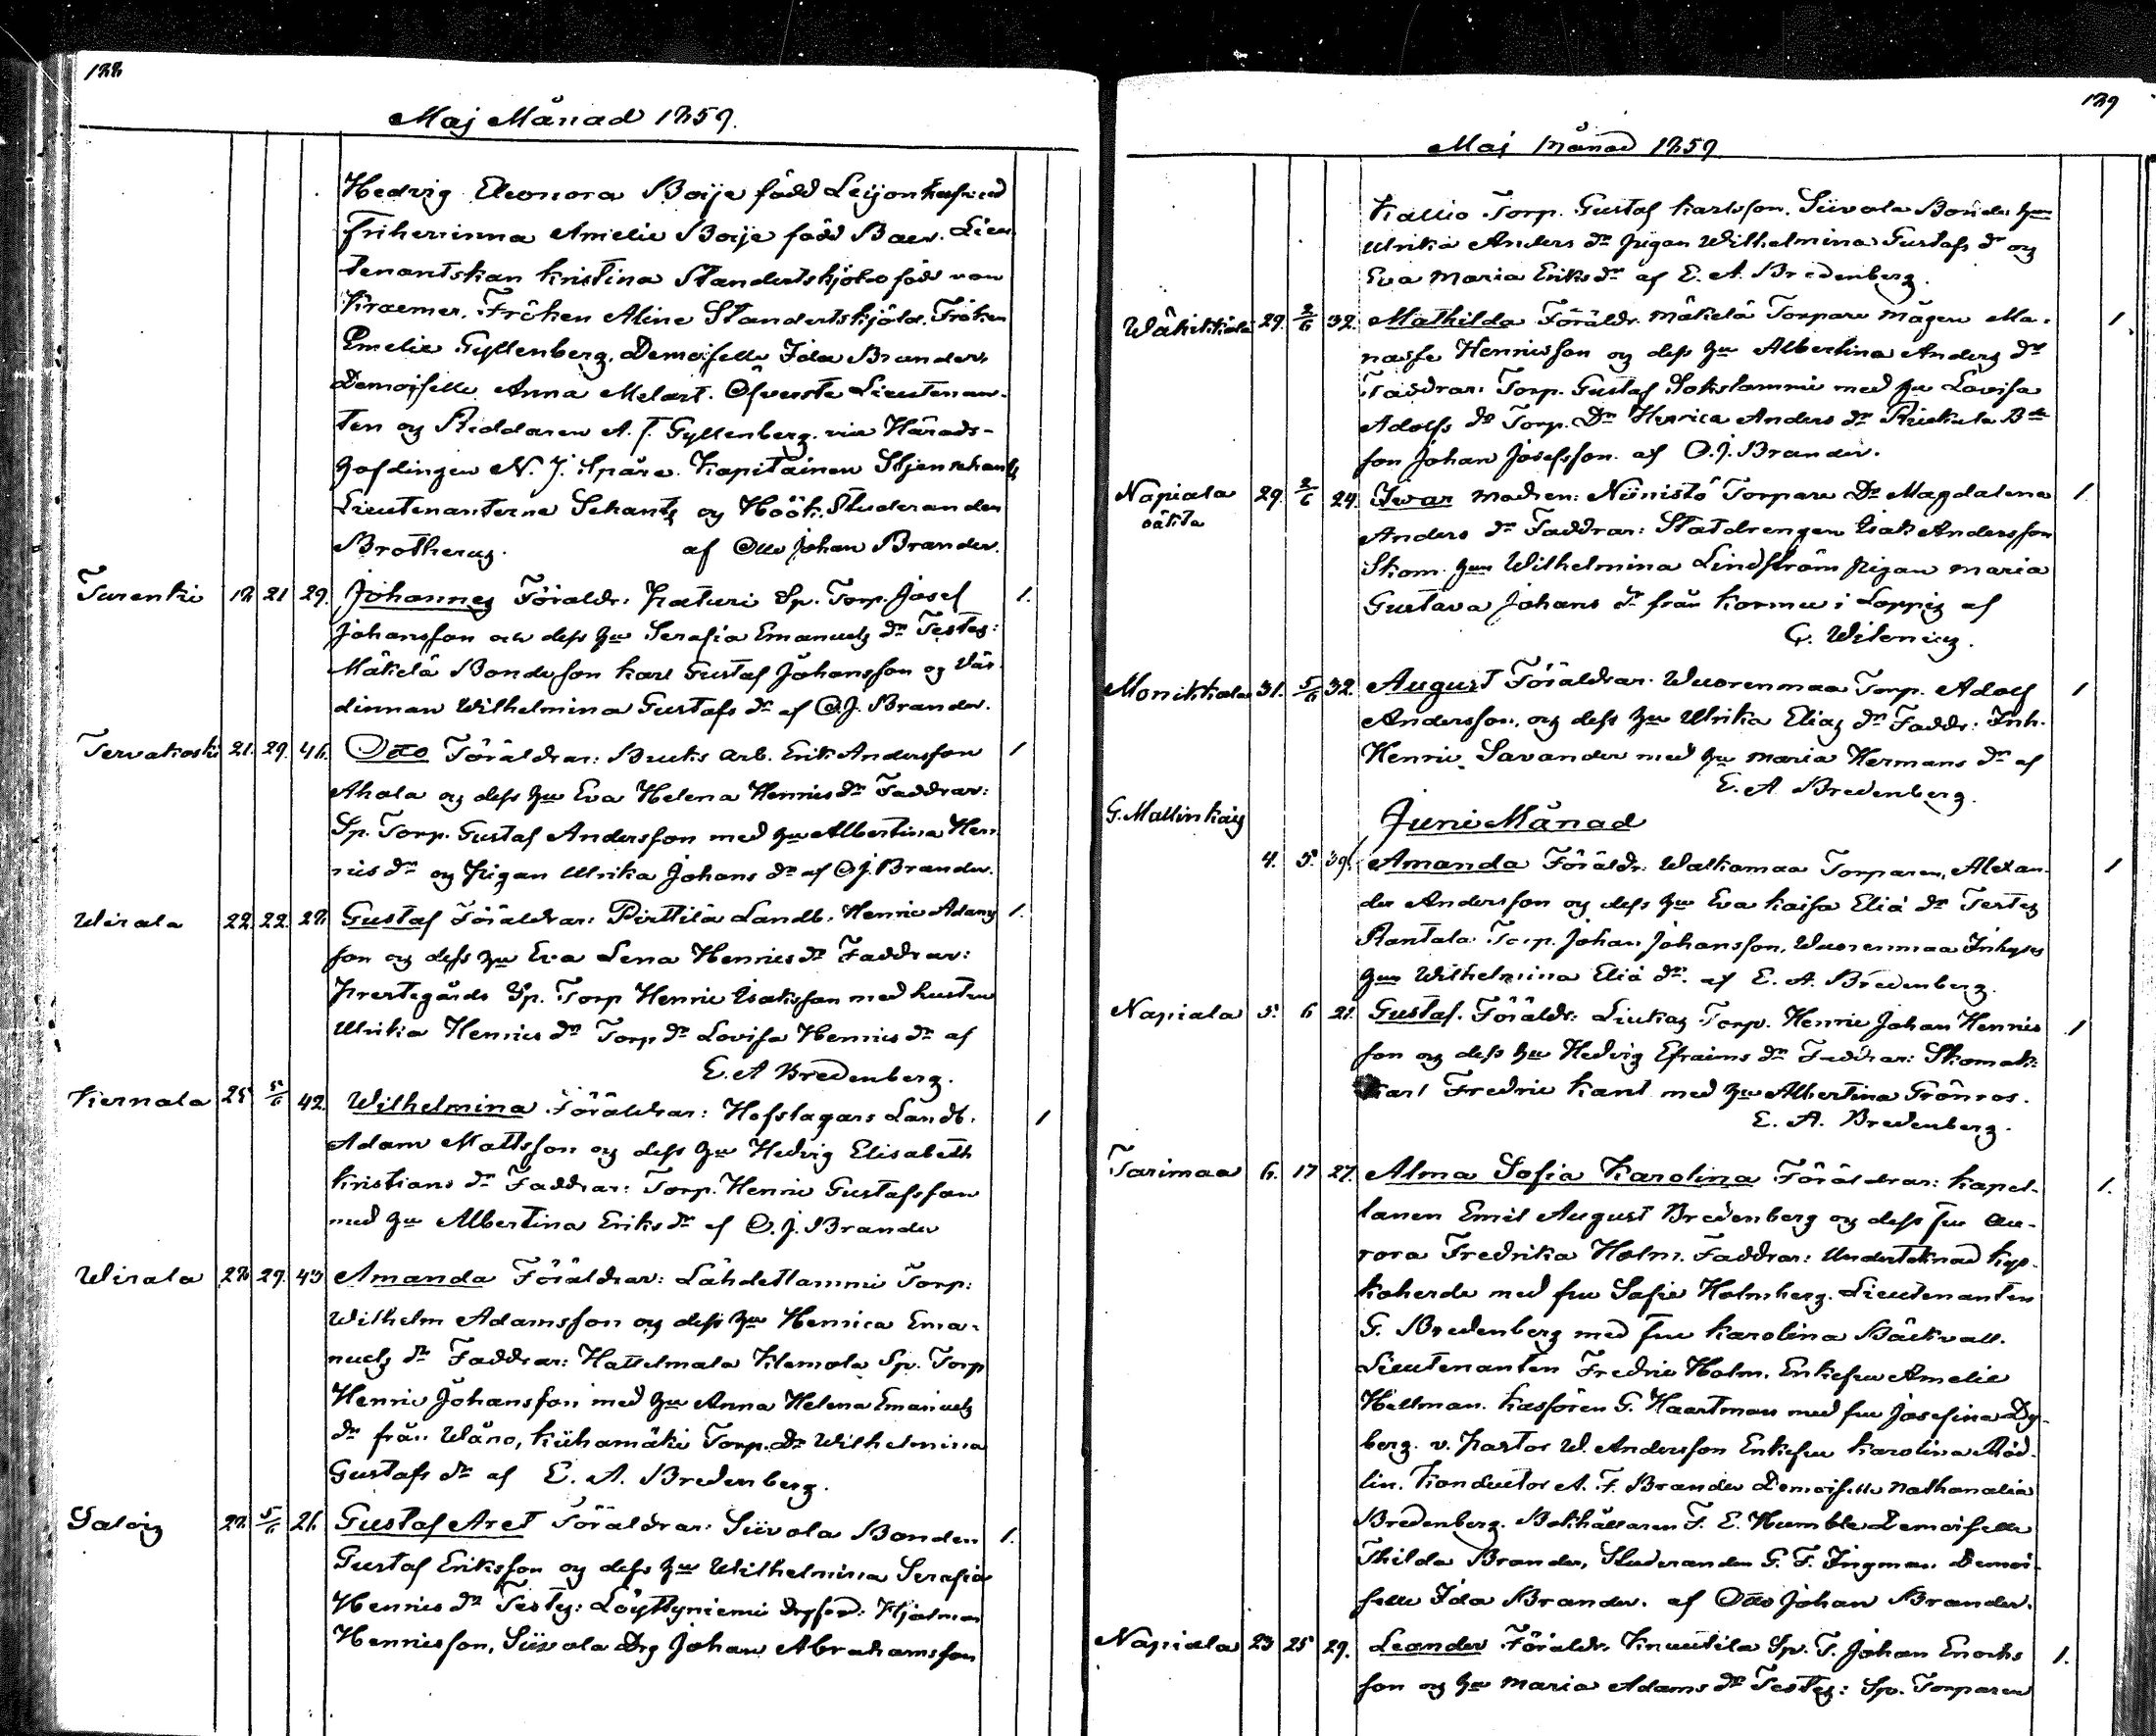 188
Maj Månad 1859.
Hedvig Eleonora Boije född Leijonhufvud
Friherrinna Amelie Boije född Baer. Lieu
tenantskan Kristina Standertskjöld född von
Kraemer. Fröken Aline Standertskjöld. Fröken
Emelie Gyllenberg. Demoiselle Ida Brander,
Demoiselle Anna Melart. Öfverste Lieutenan-
ten og Riddaren A. F. Gyllenberg. vice Härads-
höfdingen N. J. Spåre. Kapitainen Stjernschantz
Lieutenanterne Schantz og Höök. Studeranden
Brotherus. af Otto Johan Brander.
Turenki 18 21 29. Johannes Föräldr. Paturi Sp. Torp. Josef 1.
Johansson och dess hu Serafia Emanuels dr Testes:
Mäkelä Bondeson Karl Gustaf Johansson og Vär
dinnan Wilhelmina Gustafs dr af O. J. Brander.
Tervakoski 21. 29. 46. Otto Föräldrar: Bruks arb. Erik Andersson 1
Ahola og dess hu Eva Helena Henrics dr Faddrar:
Sp. Torp. Gustaf Andersson med hu Albertina Hen
rics dr og Pigan Ulrika Johans dr af O J. Brander.
Wirala 22. 22. 28. Gustaf Föräldrar: Pirttilä Landb. Henric Adams 1.
son og dess hu Eva Lena Henrics dr Faddrar:
Prestegårds Sp. Torp Henric Isaksson med hustru
Ulrika Henrics dr Torp dr Lovisa Henrics dr af
E. A Bredenberg.
Kiernala 25 5/6 42. Wilhelmina Föräldrar: Hofslagars Landb. 1
Adam Mattsson og dess hu Hedvig Elisabeth
Kristians dr Faddrar: Torp. Henric Gustafsson
med hu Albertina Eriks dr af O. J. Brander
Wirala 28 29. 43 Amanda Föräldrar: Lähdetlammi Torp:
Wilhelm Adamsson og dess hu Henrica Ema-
nuels dr Faddrar: Hattelmala Klemola Sp. Torp
Henric Johansson med hu Anna Helena Emanuels
dr från Wåno, Kiihamäki Torp. dr Wilhelmina
Gustafs dr af E. A. Bredenberg.
Salois 28. 5/6 26. Gustaf Aret Föräldrar: Siivola Bonden 1.
Gustaf Eriksson og dess hu Wilhelmina Serafia
Henrics dr Testes: Löyttyniemi Hjalmar
Henricsson, Siivola Drg Johan Abrahamsson
189
Maj Månad 1859
Kallio Torp. Gustaf Karlsson. Siivola Bondes hu
Ulrika Anders dr Pigan Wilhelmina Gustafs dr og
Eva Maria Eriks dr af E. A. Bredenberg.
Wähikkälä 29. 3/6 32. Mathilda Föräldr. Mäkelä Torpare Mågen Ma- 1.
nasse Henricsson og dess hu Albertina Anders dr
Faddrar: Torp. Gustaf Sokslammi med hu Lovisa
Adolfs dr Torp. Dr Henrica Anders dr Rickala Bde
son Johan Josefsson. af O. J. Brander.
Napiala 29. 3/6 24. Iwar Modren: Niinistö Torpare Dr Magdalena 1.
Anders dr Faddrar: Statdrengen Isak Andersson
Skom. hu Wilhelmina Lindström Pigan Maria
Gustava Johans dr från Kormu i Loppis af
G. Wilenius.
Monikkala 31. 5/6 32. August Föräldrar. Wuorenmaa Torp. Adolf 1
Andersson, og dess hu Ulrika Elias dr Faddr: Inh.
Henric Savander med hu Maria Hermans dr af
E. A Bredenberg.
G. Mallinkais
Juni Månad
4. 5. 39. Amanda Föräldr: Walkamaa Torparen, Alexan- 1
der Andersson og dess hu Eva Kaisa Eliä dr Testes
Rantala Torp. Johan Johansson, Wuorenmaa Inhyses
hu Wilhelmina Eliä dr. af E. A. Bredenberg.
Napiala 5. 6 21. Gustaf. Föräldr: Liukas Torp. Henric Johan Henrics 1
son og dess hu Hedvig Efraims dr Faddrar: Skomak:
Karl Fredric Kant med hu Albertina Grönros.
E. A. Bredenberg.
Tarimaa 6. 17 27. Alma Sofia Karolina Föräldrar: Kapel- 1.
lanen Emil August Bredenberg og dess fru Au-
rora Fredrika Holm. Faddrar: Undertecknad Kyr-
koherde med fru Sofie Holmberg. Lieutenanten
G. Bredenberg med fru Karolina Bäckvall.
Lieutenanten Fredric Holm. Enkefru Amelie
Hellman. Kassören G. Haartman med fru Josefina Dy-
berg. v. Pastor W. Andersson Enkefru Karolina Röd-
lin. Konductor A. F. Brander Demoiselle Nathanalia
Bredenberg. Bokhållaren F. E. Humble Demoiselle
Thilda Brander, Studeranden G. F. Ingman. Demoi-
selle Ida Brander. af Otto Johan Brander.
Napiala 23 25 29. Leander Föräldr. Knuutila Sp. T. Johan Enochs 1.
son og hu Maria Adams dr Testes: Sp. Torparen